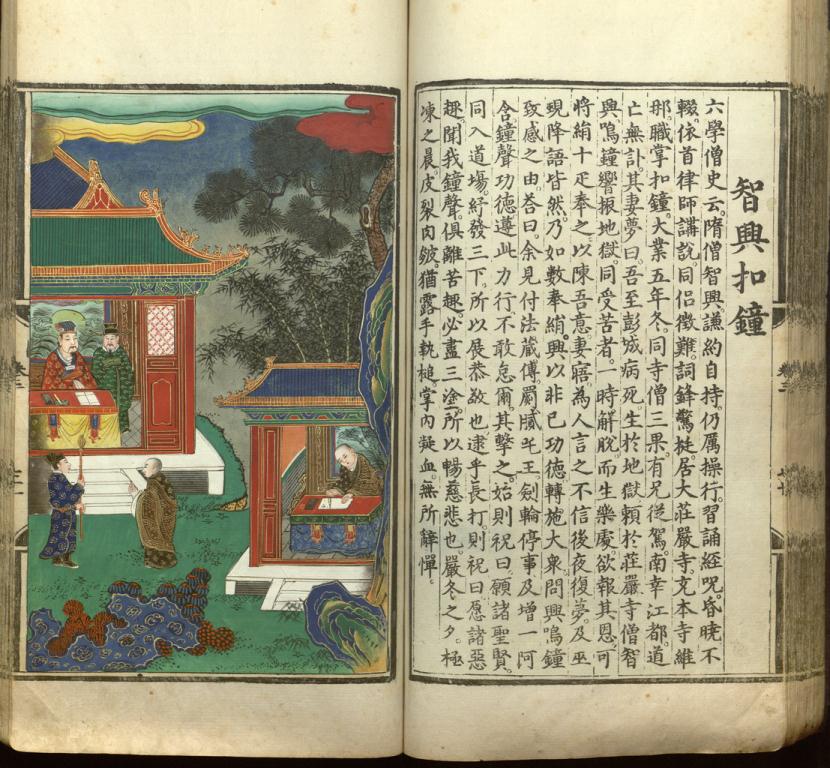 智興扣鐘
六學僧史云。隋僧智興。謙約自持。仍厲操行。習誦經呪。昏曉不
輟。依首律師講說。同侶徵難。詞鋒驚挺。居大莊嚴寺。充本寺維
那。職掌扣鐘。大業五年冬。同寺僧三果。有兄從駕。南幸江都。道
亡無訃。其妻夢曰。吾至彭城病死。生於地獄。賴於莊嚴寺僧智
興。鳴鐘響振地獄。同受苦者。一時解脫。而生樂處。欲報其恩。可
將絹十疋奉之。以陳吾意。妻寤。為人言之不信。後夜復夢。及巫
現降語皆然。乃如數奉絹。興以非已功德。轉施大衆。問興鳴鐘
致感之由。荅曰。余見付法藏傳。罽膩吒王。劍輪停事。及增一阿
含鐘聲功德。遵此力行。不敢怠爾。其擊之始。則祝曰。願諸聖賢。
同入道場。紓發三下。所以展恭敬也。逮乎長打。則祝曰。愿諸惡
趣。聞我鐘聲。俱離苦趣。必盡三塗。所以暢慈悲也。嚴冬之夕。極
凍之晨。皮裂肉皴。猶露手執槌。掌內凝血。無所諱憚。